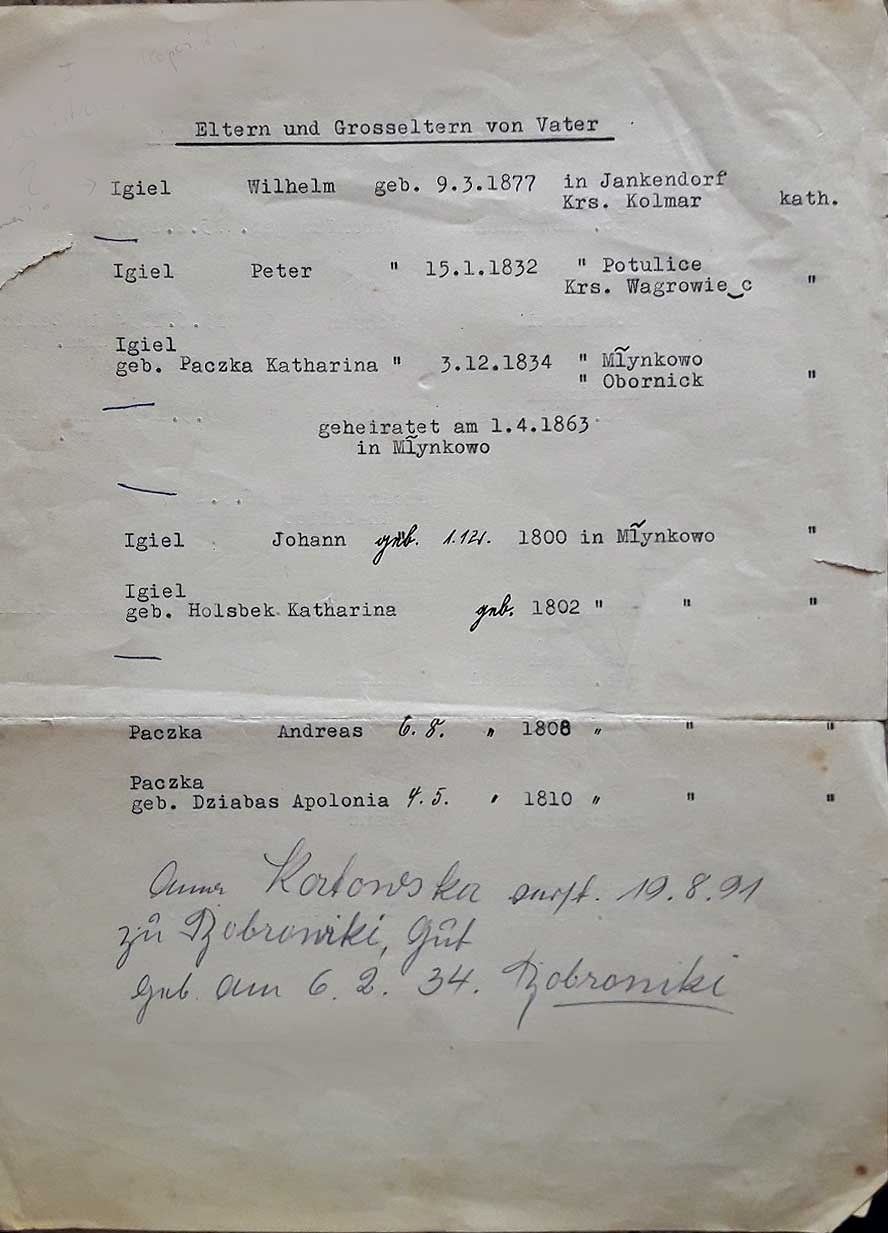 Eltern und Grosseltern von Vater
Igiel Wilhelm geb. 9.3.1877 in Jankendorf
Krs. Kolmar kath.
Igiel Peter " 15.1.1832 " Potulice
Krs. Wagrowie c "
Igiel
geb. Paczka Katharina " 3.12.1834 " Młynkowo
" Obornick "
geheiratet am 1.4.1863
in Młynkowo
Igiel Johann geb. 1800 in Młynkowo "
Igiel
geb. Holsbek Katharina geb. 1802 " " "
Paczka Andreas 6.8. " 1808 " " "
Paczka
geb. Dziabas Apolonia 4.5. " 1810 " " "
Anna 19.8.91
zu Gut
geb. am 6.2.34.